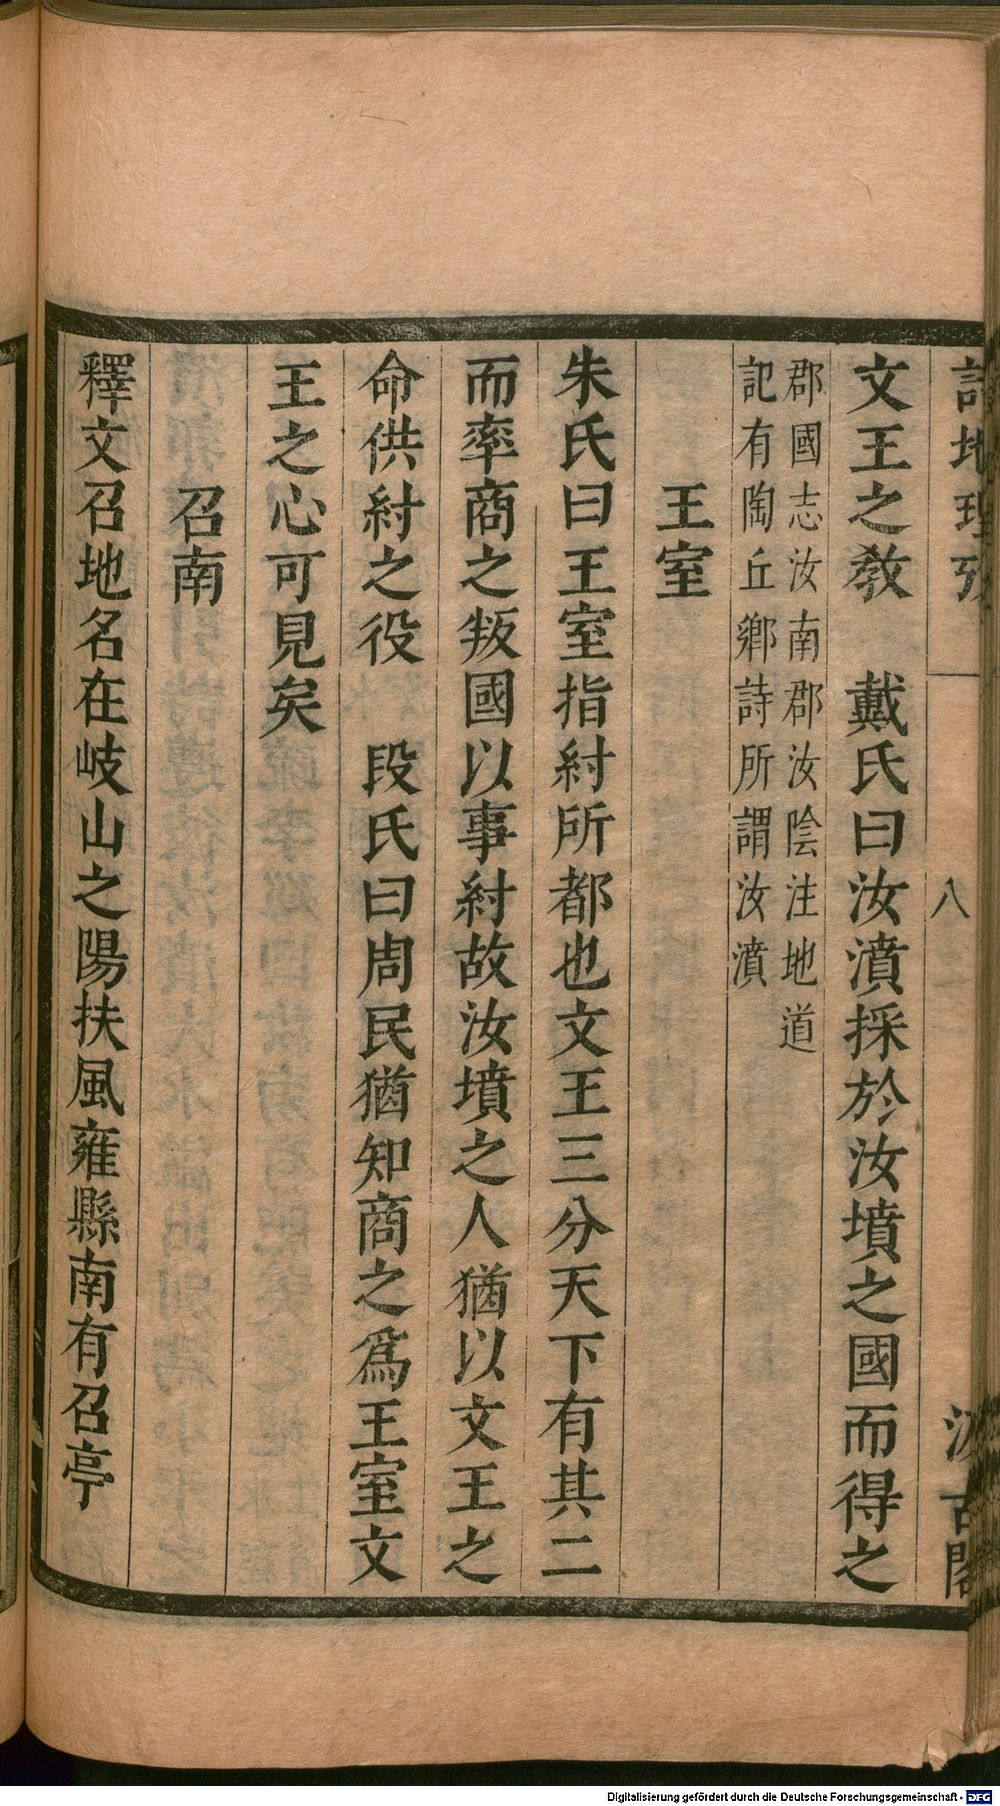 詩地理攷
八
汲古閣
文王之敎　戴氏曰汝濆採於汝墳之國而得之
郡國志汝南郡汝陰注地道
記有陶丘鄉詩所謂汝濆
王室
朱氏曰王室指紂所都也文王三分天下有其二
而率商之叛國以事紂故汝墳之人猶以文王之
命供紂之役　段氏曰周民猶知商之爲王室文
王之心可見矣
召南
釋文召地名在岐山之陽扶風雍縣南有召亭
Digitalisierung gefördert durch die Deutsche Forschungsgemeinschaft - DFG